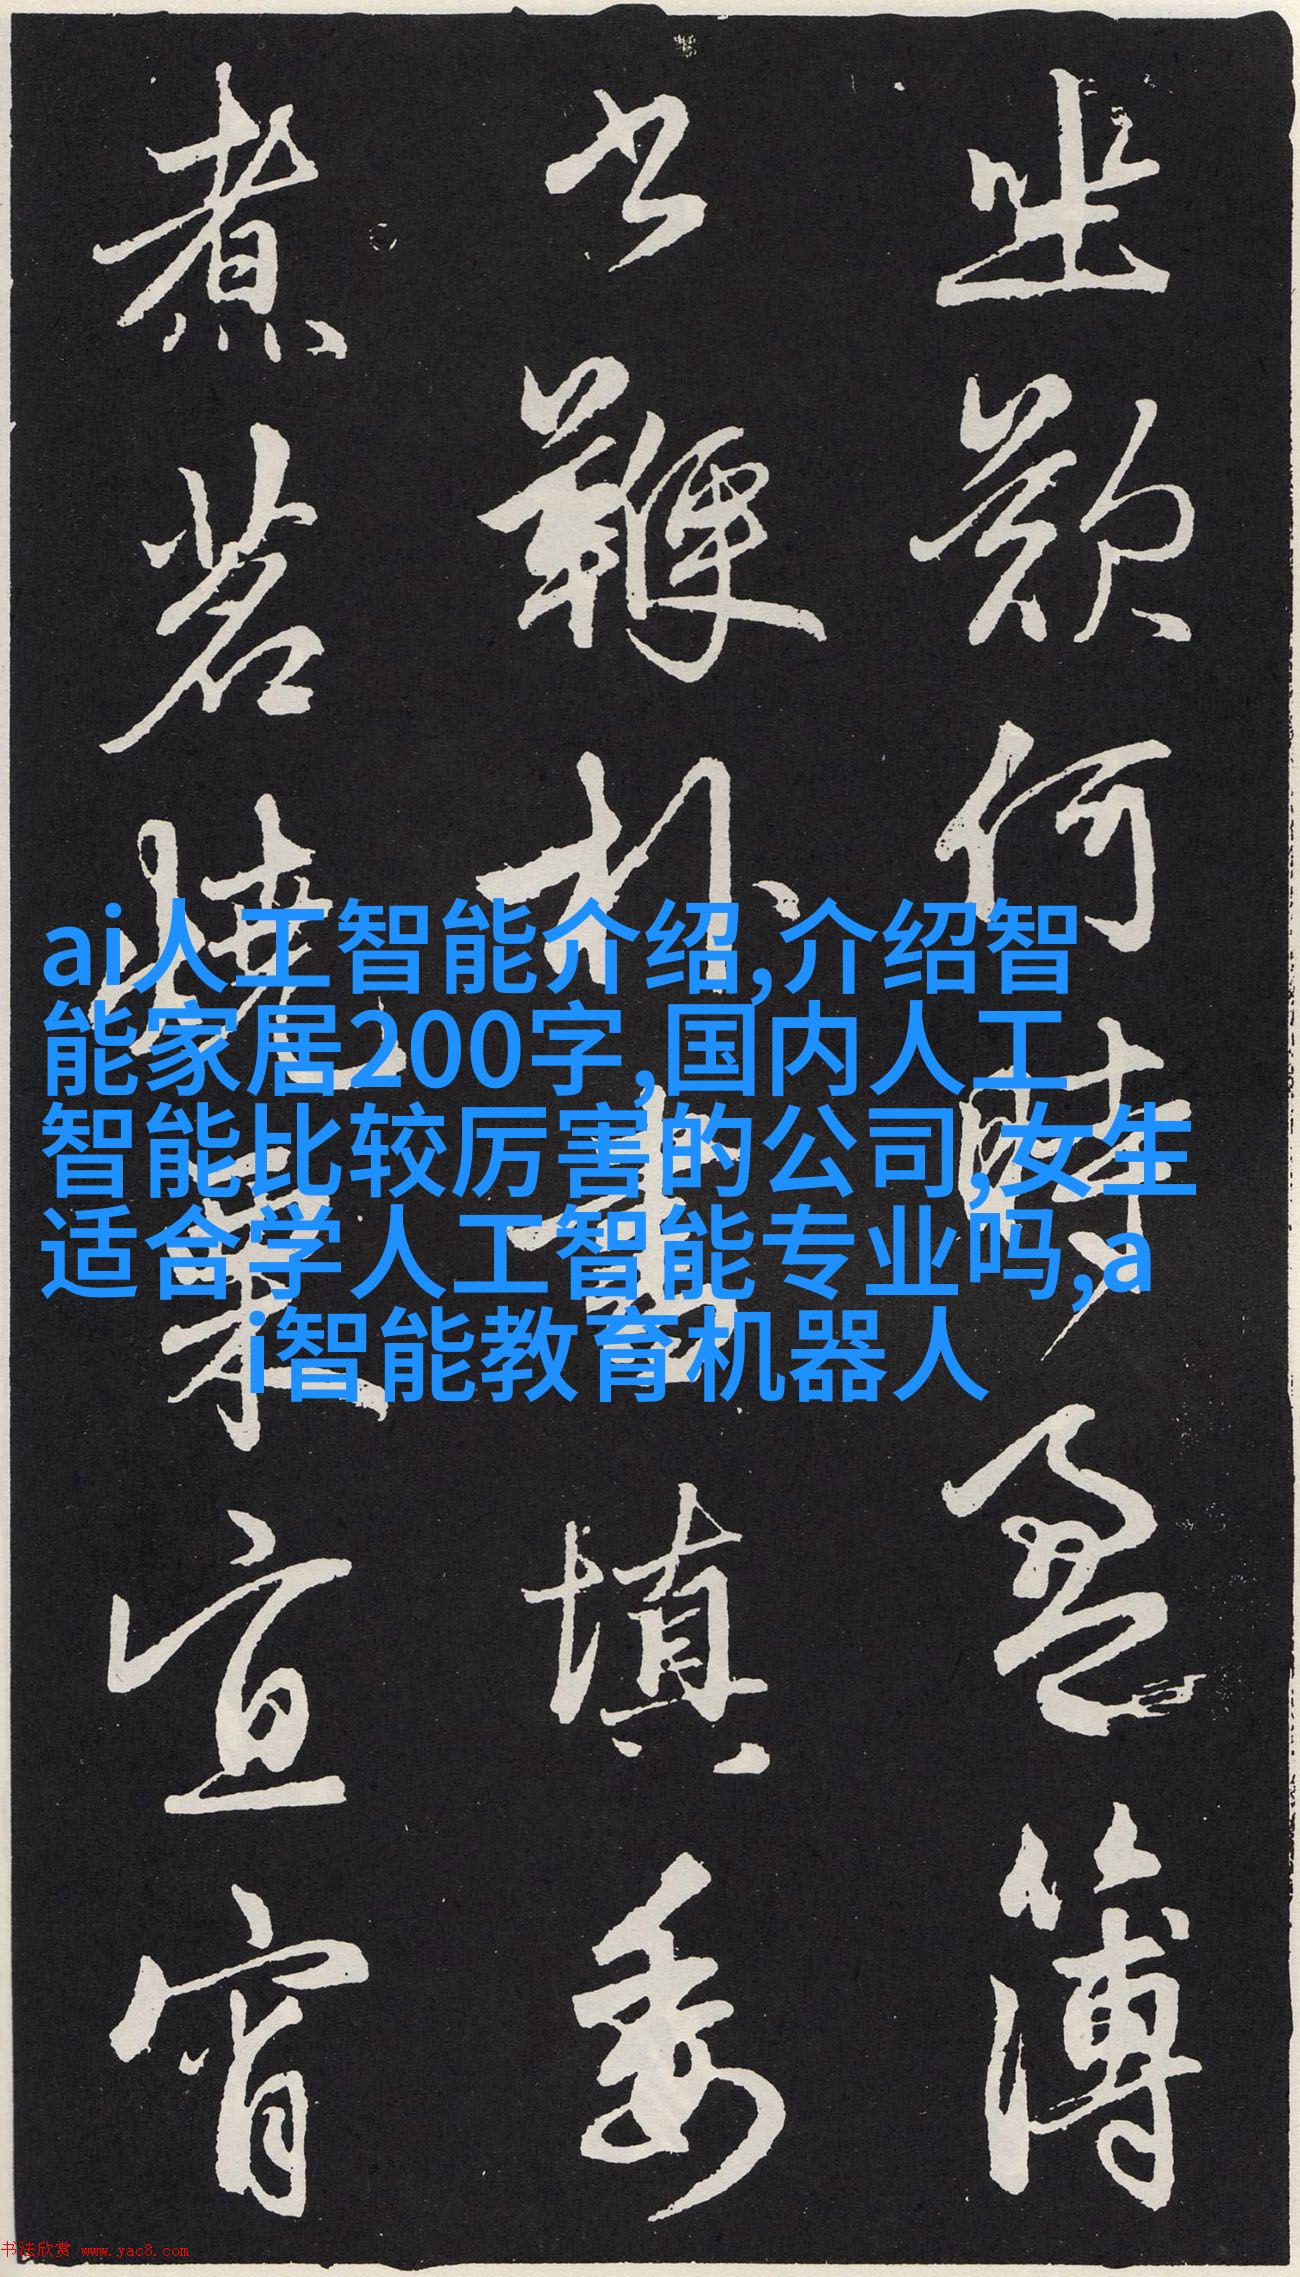 何時盈簿
鞭朴書填委
煮茗燒栗宜宵
ai人工智能介绍,介绍智
能家居200字,国内人工
智能比较厉害的公司,女生
适合学人工智能专业吗,a
i智能教育机器人
书法欣赏 www.yac8.com